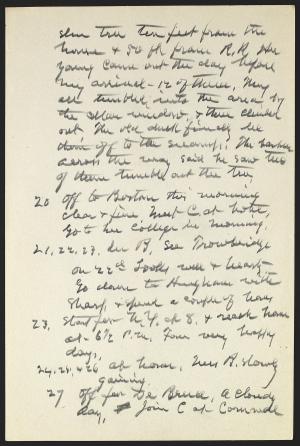 elm tree ten feet from the
house & 50 ft from R.R. The
young came out the day before
my arrival - 12 of them. They
all tumbled into the area by
the cellar window, & then climbed
out. The old duck finally led
them off to the swamp. The barber
across the way said he saw two
of them tumble out the tree
20 Off to Boston this morning
clear & fine. Meet C. at hotel.
Go to her College in morning.
21, 22, 23. In B. See Trowbridge
on 22d Looks well & hearty
Go down to Hingham with
Sharp, & spend a couple of hours
23. Start for N.Y. at 8, & reach home
at 6½ P.M. Four very happy
days,
24, 25, & 26 at home. Mrs B. slowly
gaining.
27 Off for De Bruce, a cloudy
day, Join C at